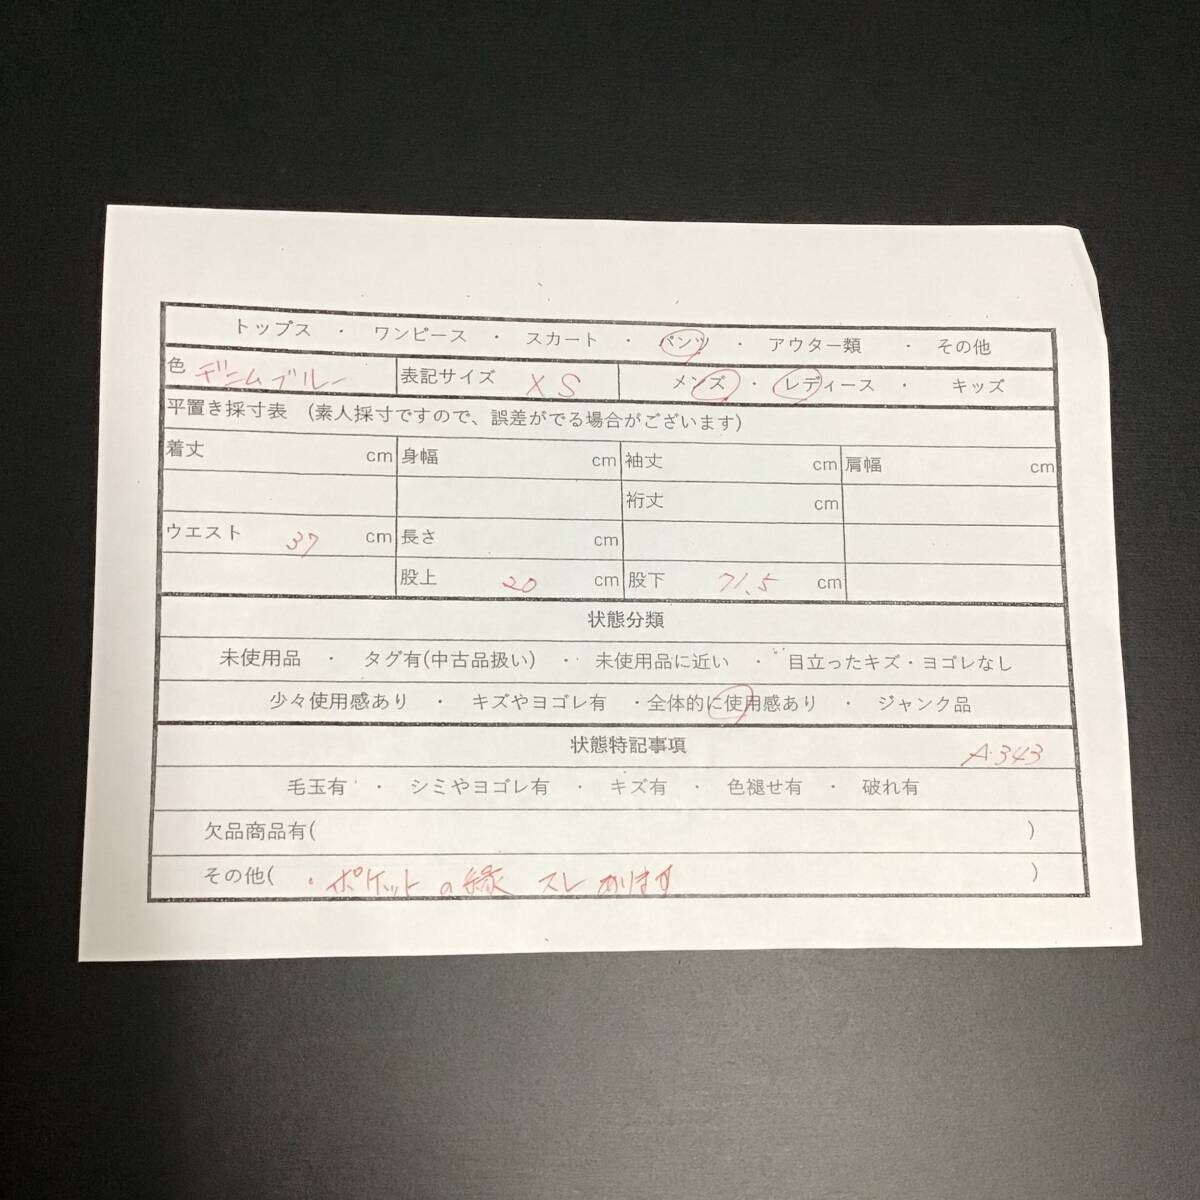 トップス ・ ワンピース ・ スカート ・ パンツ ・ アウター類 ・ その他
色 デニムブルー 表記サイズ XS メンズ ・ レディース ・ キッズ
平置き採寸表 (素人採寸ですので、誤差がでる場合がございます)
着丈 cm 身幅 cm 袖丈 cm 肩幅 cm
裄丈 cm
ウエスト 37 cm 長さ cm
股上 20 cm 股下 71.5 cm
状態分類
未使用品 ・ タグ有(中古品扱い) ・ 未使用品に近い ・ 目立ったキズ・ヨゴレなし
少々使用感あり ・ キズやヨゴレ有 ・全体的に使用感あり ・ ジャンク品
状態特記事項 A-343
毛玉有 ・ シミやヨゴレ有 ・ キズ有 ・ 色褪せ有 ・ 破れ有
欠品商品有( )
その他( ・ポケットの縁 スレあります )